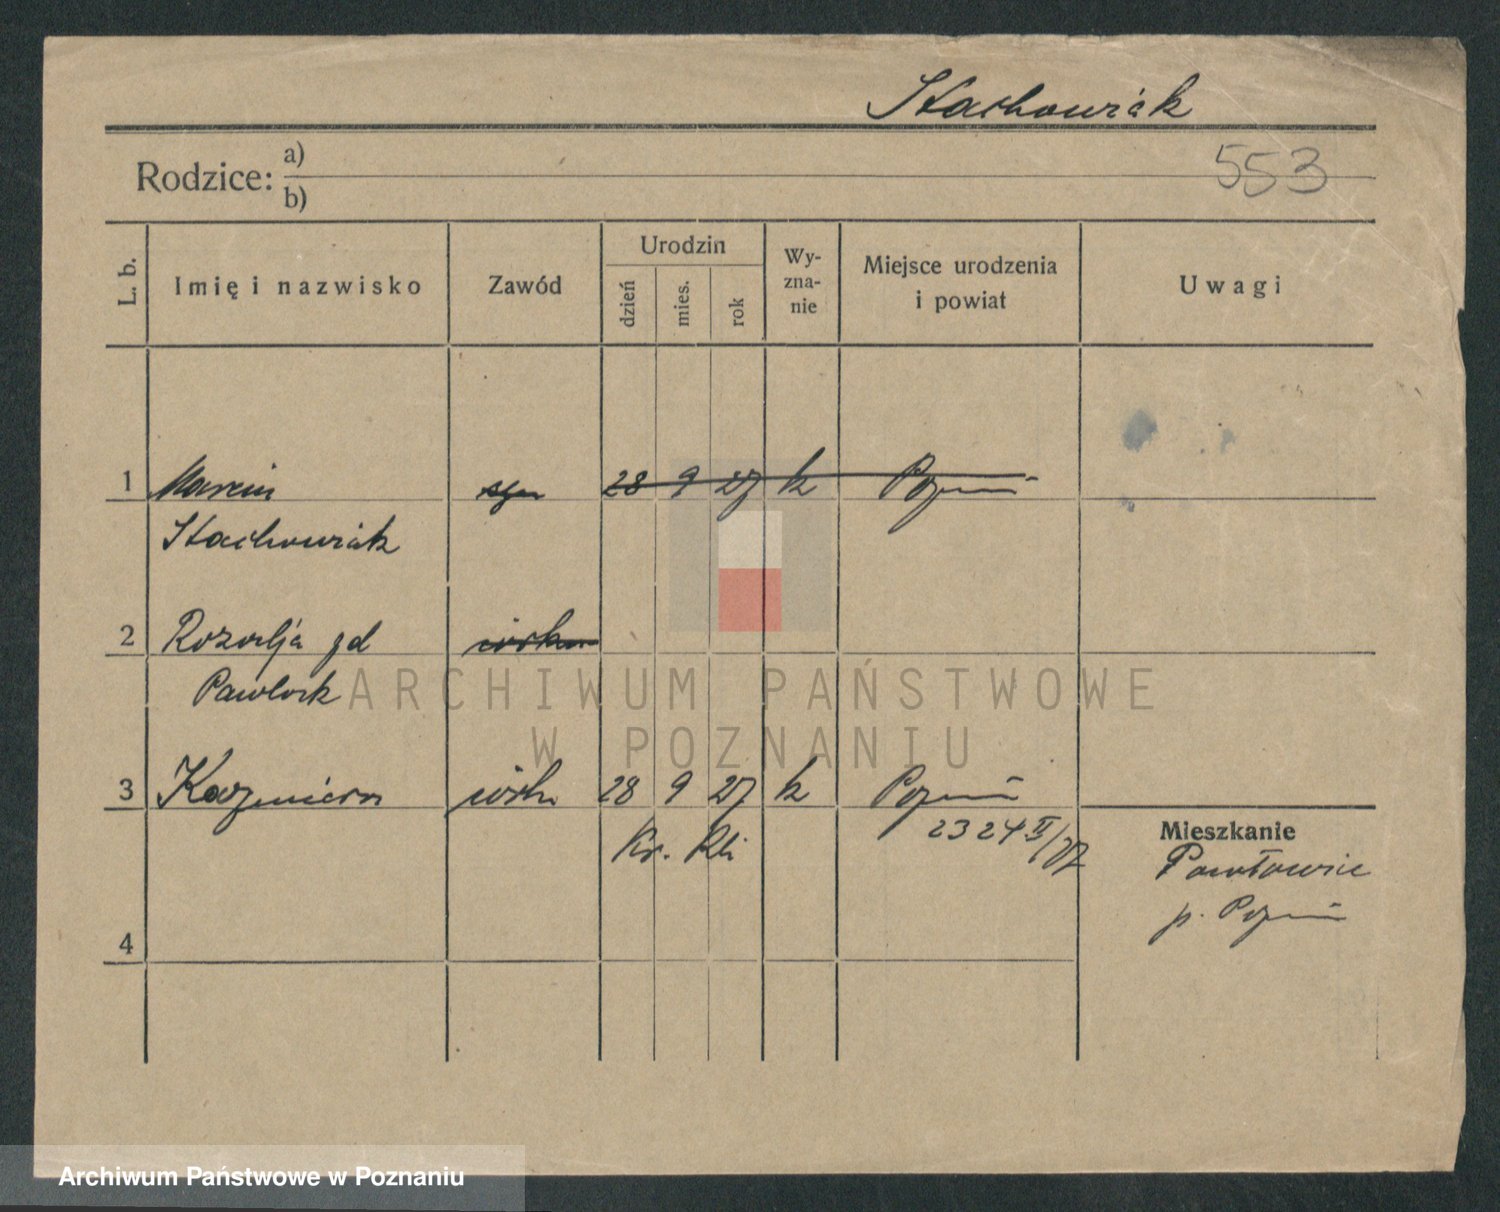 Stachowiak
553
Rodzice: a)
b)
L. b. Imię i nazwisko Zawód Urodzin dzień mies. rok Wy-zna-nie Miejsce urodzenia i powiat Uwagi
1 Marcin 28 9 27 k Poznań
Stachowiak
2 Rozalja gd
Pawlack
3 Kazimiera córka 28 9 27 k Poznań
2324 II/27
Mieszkanie
Pawłowice
p. Pozna
4
ARCHIWUM PAŃSTWOWE
W POZNANIU
Archiwum Państwowe w Poznaniu